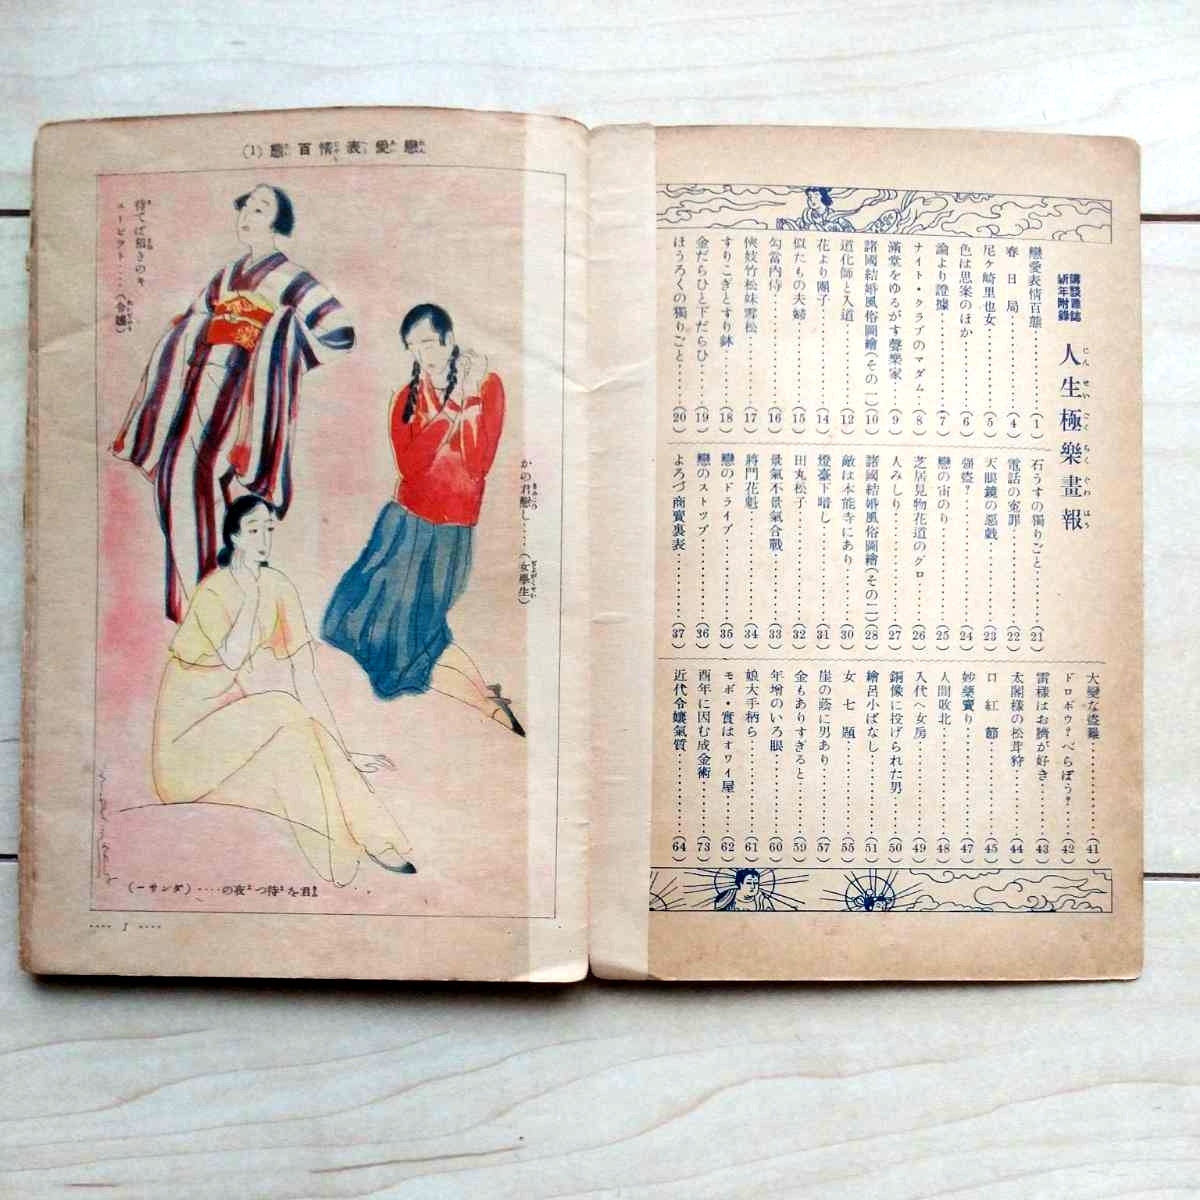 講談雜誌
新年附錄
人生極樂畫報
じんせいごくらくぐわほう
戀愛表情百態‥‥‥(1)
春日局‥‥‥(4)
尼ケ崎里也女‥‥‥(5)
色は思案のほか‥‥‥(6)
論より證據‥‥‥(7)
ナイト・クラブのマダム‥‥‥(8)
滿堂をゆるがす聲樂家‥‥‥(9)
諸國結婚風俗圖繪(その一)(10)
道化師と入道‥‥‥(12)
花より團子‥‥‥(14)
似たもの夫婦‥‥‥(15)
勾當內侍‥‥‥(16)
俠妓竹松妹雪松‥‥‥(17)
すりこぎとすり鉢‥‥‥(18)
金だらひと下だらひ‥‥‥(19)
ほうろくの獨りごと‥‥‥(20)
石うすの獨りごと‥‥‥(21)
電話の寃罪‥‥‥(22)
天眼鏡の惡戯‥‥‥(23)
强盜?‥‥‥(24)
戀の宙のり‥‥‥(25)
芝居見物花道のグロ‥‥‥(26)
人みしり‥‥‥(27)
諸國結婚風俗圖繪(その二)(28)
敵は本能寺にあり‥‥‥(30)
燈臺下暗し‥‥‥(31)
田丸松子‥‥‥(32)
景氣不景氣合戰‥‥‥(33)
將門花魁‥‥‥(34)
戀のドライブ‥‥‥(35)
戀のストツプ‥‥‥(36)
よろづ商賣裏表‥‥‥(37)
大變な盜難‥‥‥(41)
ドロボウ?べらぼう?‥‥‥(42)
雷樣はお臍が好き‥‥‥(43)
太閤樣の松茸狩‥‥‥(44)
口紅節‥‥‥(45)
妙藥賣り‥‥‥(47)
人間敗北‥‥‥(48)
入代へ女房‥‥‥(49)
銅像に投げられた男‥‥‥(50)
繪呂小ばなし‥‥‥(51)
女七題‥‥‥(55)
崖の蔭に男あり‥‥‥(57)
金もありすぎると‥‥‥(59)
年增のいろ眼‥‥‥(60)
娘大手柄ら‥‥‥(61)
モボ・實はオワイ屋‥‥‥(62)
酉年に因む成金術‥‥‥(73)
近代令孃氣質‥‥‥(64)
戀愛表情百態(1)
かの君戀し‥‥(女學生)
待てば招きのキ
ユーピツト‥‥(令孃)
君を待つ夜の‥‥(ダンサー)
‥‥ 1 ‥‥